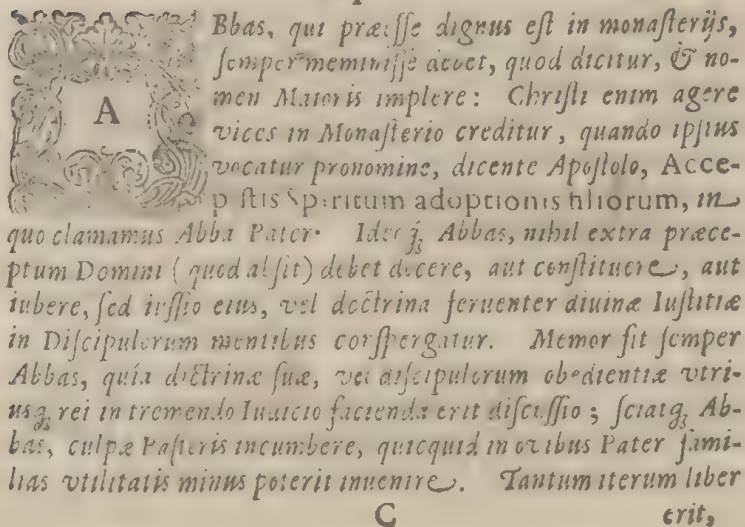 ABbas, qui præesse dignus est in monasterijs,
semper meminisse debet, quod dicitur, & no-
men Maioris implere: Christi enim agere
vices in Monasterio creditur, quando ipsius
vocatur pronomine, dicente Apostolo, Acce-
pistis Spiritum adoptionis filiorum, in
quo clamamus Abba Pater. Ideoq́; Abbas, nihil extra præce-
ptum Domini (quod absit) debet docere, aut constituere, aut
iubere, sed iussio eius, vel doctrina feruenter diuinæ Iustitiæ
in Discipulorum mentibus conspergatur. Memor sit semper
Abbas, quia doctrinæ suæ, vel discipulorum obedientiæ vtri-
usq; rei in tremendo Iudicio facienda erit discussio; sciatq; Ab-
bas, culpæ Pastoris incumbere, quicquid in ouibus Pater fami-
lias vtilitatis minus poterit inuenire. Tantum iterum liber
C erit,